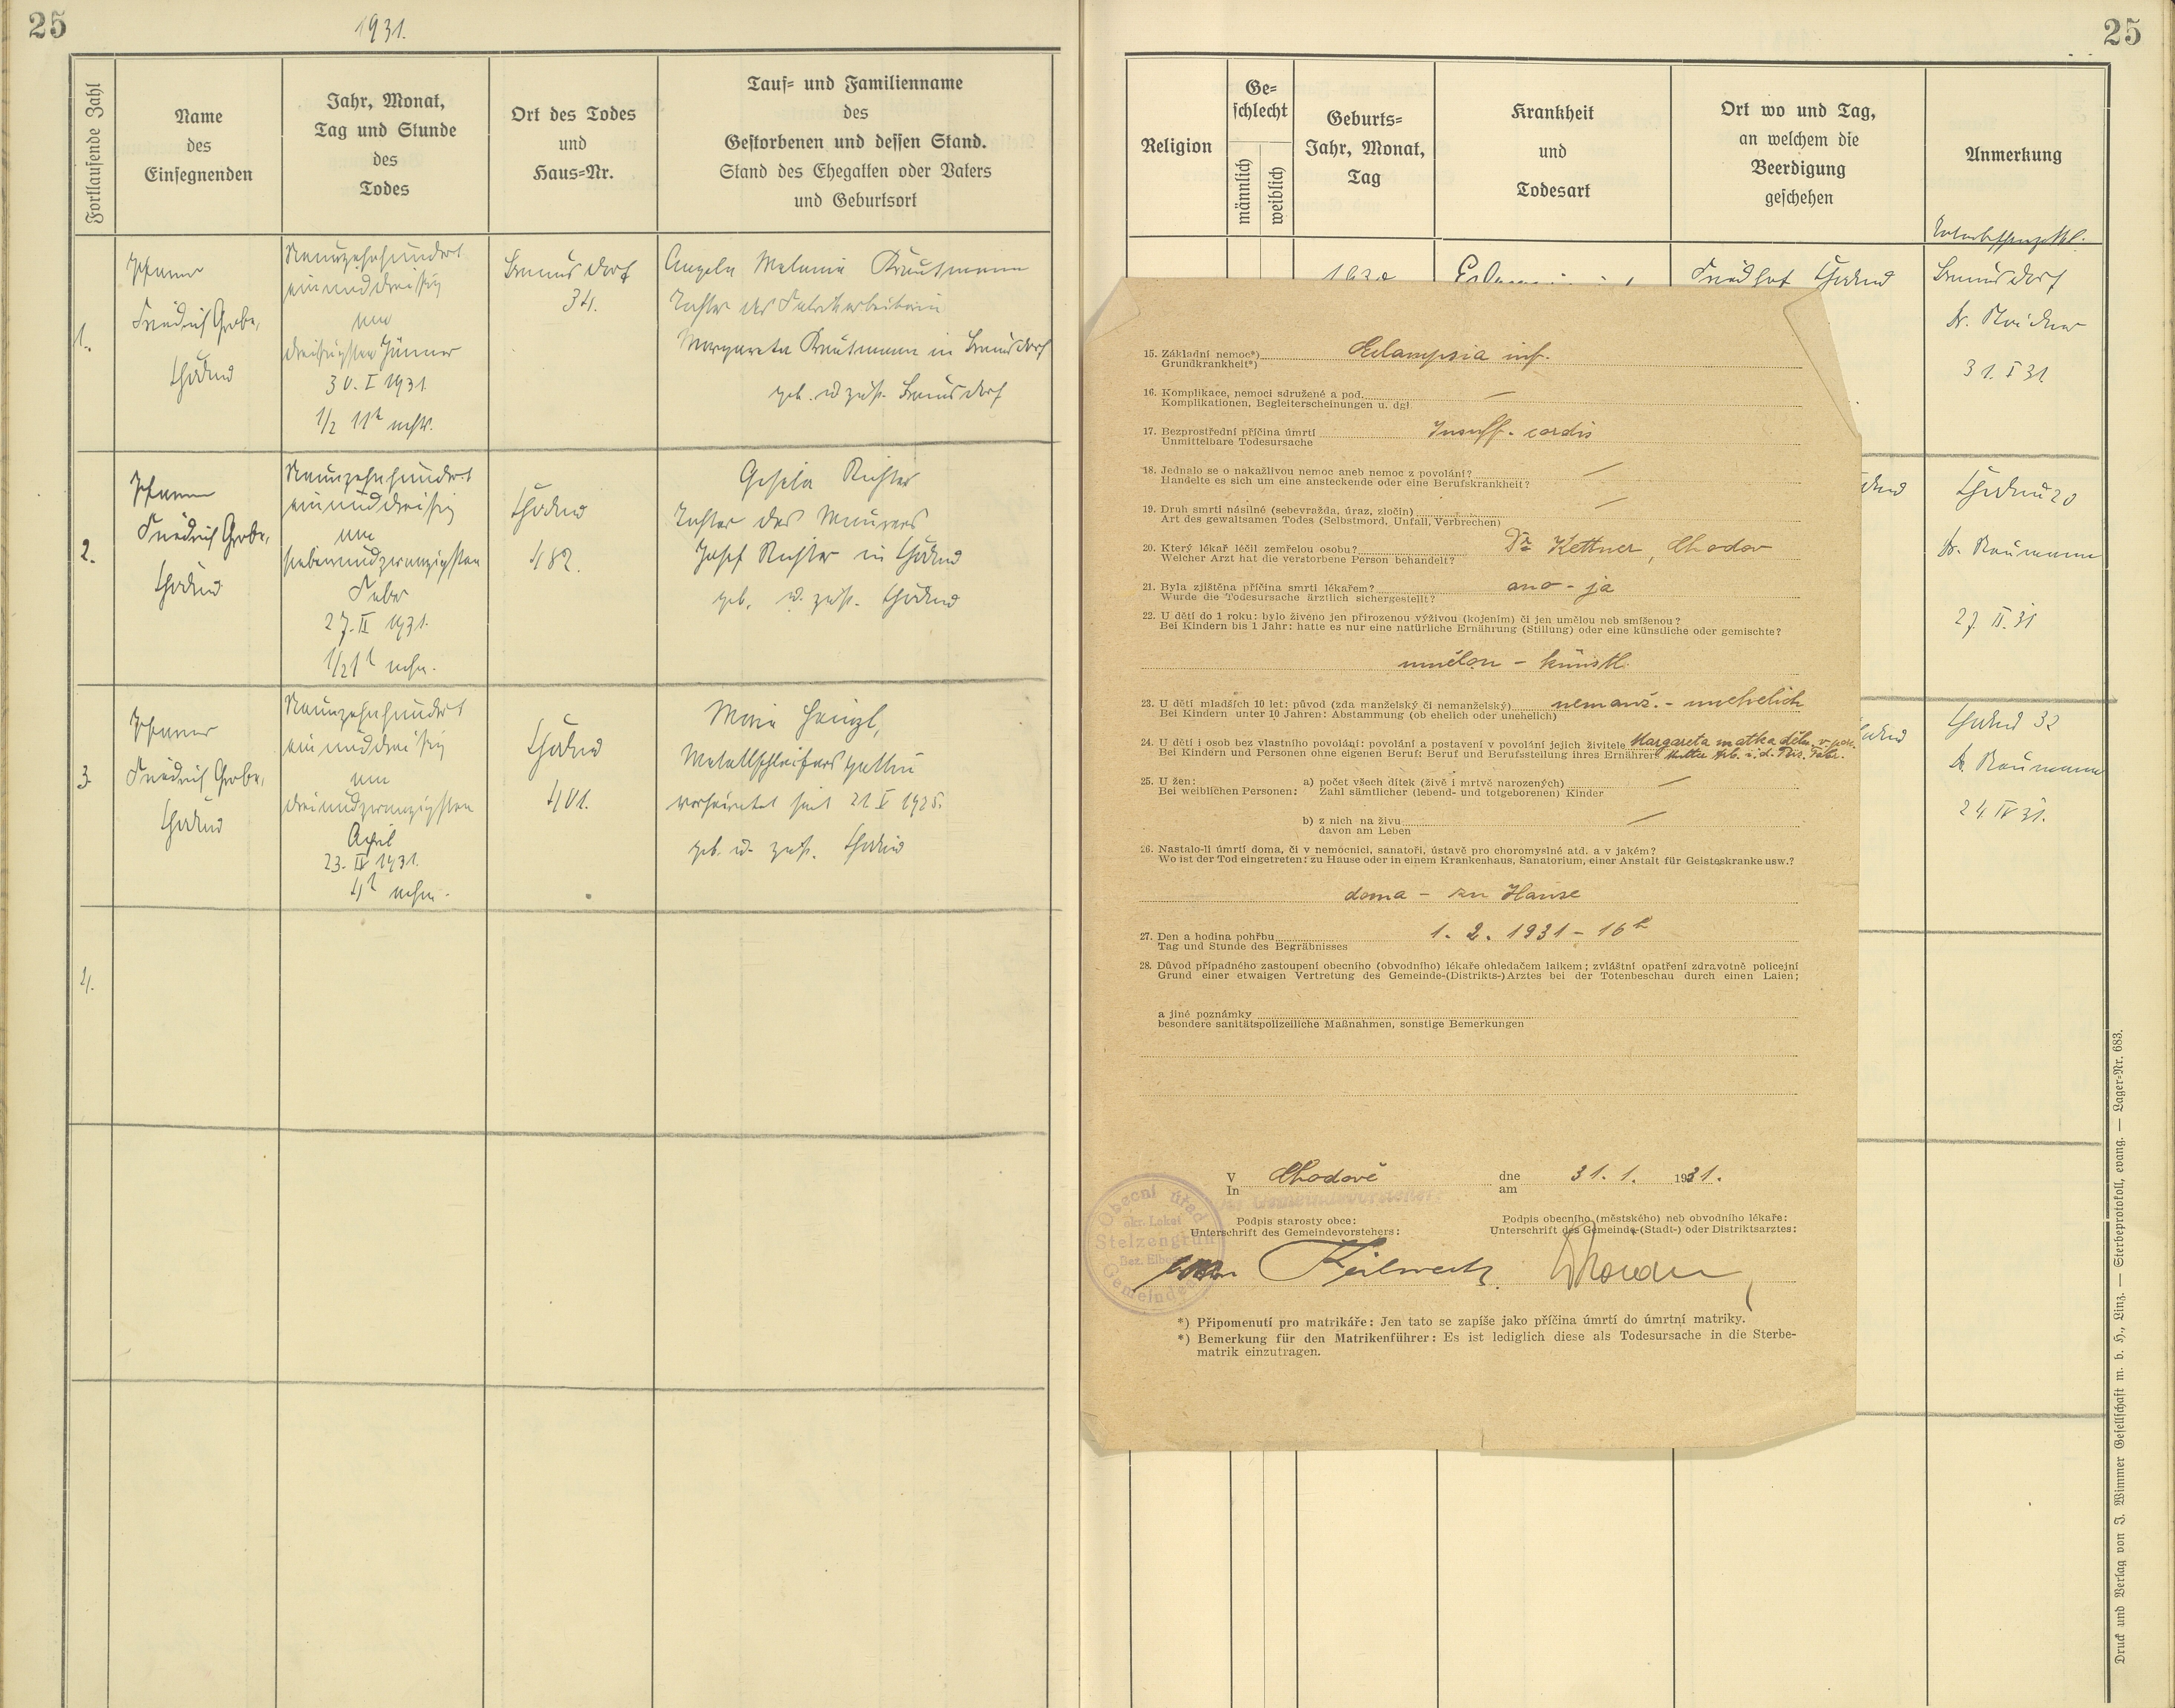 25
1931.
Fortlaufende Zahl
Name
des
Einsegnenden
Jahr, Monat,
Tag und Stunde
des
Todes
Ort des Todes
und
Haus=Nr.
Tauf= und Familienname
des
Gestorbenen und dessen Stand.
Stand des Ehegatten oder Vaters
und Geburtsort
1.
Pfarrer
Friedrich Grobe,
Chodau
Neunzehnhundert
einunddreißig
am
dreißigsten Jänner
30. I 1931
1/2 11h
34.
Angela Melanie
Tochter der Fabrikarbeiterin
Margareta
geb. u. zust.
2.
Pfarrer
Friedrich Grobe,
Chodau
Neunzehnhundert
einunddreißig
am
siebenundzwanzigsten
Feber
27. II 1931.
Chodau
482.
Gisela Richter
Tochter des Maurers
Josef Richter in Chodau
geb. u. zust. Chodau
3.
Pfarrer
Friedrich Grobe,
Chodau
Neunzehnhundert
einunddreißig
am
dreiundzwanzigsten
April
23. IV 1931.
4h
Chodau
401.
Maria
Metallschleifers gattin
verheiratet seit 21. V 1925.
geb. u. zust. Chodau
4.
25
Religion
Ge=
schlecht
männlich
weiblich
Geburts=
Jahr, Monat,
Tag
Krankheit
und
Todesart
Ort wo und Tag,
an welchem die
Beerdigung
geschehen
Anmerkung
Friedhof Chodau
31. I 31
Dr.
27. II. 31
Chodau 32
Dr.
24 IV 31.
15. Základní nemoc*) Eclampsia inf.
Grundkrankheit*)
16. Komplikace, nemoci sdružené a pod. —
Komplikationen, Begleiterscheinungen u. dgl.
17. Bezprostřední příčina úmrtí Insuff. cordis
Unmittelbare Todesursache
18. Jednalo se o nakažlivou nemoc aneb nemoc z povolání? —
Handelte es sich um eine ansteckende oder eine Berufskrankheit?
19. Druh smrti násilné (sebevražda, úraz, zločin) —
Art des gewaltsamen Todes (Selbstmord, Unfall, Verbrechen)
20. Který lékař léčil zemřelou osobu? Dr Kettner, Chodov
Welcher Arzt hat die verstorbene Person behandelt?
21. Byla zjištěna příčina smrti lékařem? ano - ja
Wurde die Todesursache ärztlich sichergestellt?
22. U dětí do 1 roku: bylo živeno jen přirozenou výživou (kojením) či jen umělou neb smíšenou?
Bei Kindern bis 1 Jahr: hatte es nur eine natürliche Ernährung (Stillung) oder eine künstliche oder gemischte?
umělou - künstl.
23. U dětí mladších 10 let: původ (zda manželský či nemanželský) nemanž. - unehelich
Bei Kindern unter 10 Jahren: Abstammung (ob ehelich oder unehelich)
24. U dětí i osob bez vlastního povolání: povolání a postavení v povolání jejich živitele Margareta matka děln. v por.
Bei Kindern und Personen ohne eigenen Beruf: Beruf und Berufsstellung ihres Ernährers Mutter Arb. i. d. Porz. Fabr.
25. U žen: a) počet všech dítek (živě i mrtvě narozených) —
Bei weiblichen Personen: Zahl sämtlicher (lebend- und totgeborenen) Kinder
b) z nich na živu —
davon am Leben
26. Nastalo-li úmrtí doma, či v nemocnici, sanatoři, ústavě pro choromyslné atd. a v jakém?
Wo ist der Tod eingetreten: zu Hause oder in einem Krankenhaus, Sanatorium, einer Anstalt für Geisteskranke usw.?
doma - zu Hause
27. Den a hodina pohřbu 1. 2. 1931 - 16h
Tag und Stunde des Begräbnisses
28. Důvod případného zastoupení obecního (obvodního) lékaře ohledačem laikem; zvláštní opatření zdravotně policejní
Grund einer etwaigen Vertretung des Gemeinde-(Distrikts-)Arztes bei der Totenbeschau durch einen Laien;
a jiné poznámky
besondere sanitätspolizeiliche Maßnahmen, sonstige Bemerkungen
V Chodově dne 31. 1. 1931.
In am
Der Gemeindevorsteher:
Podpis starosty obce: Podpis obecního (městského) neb obvodního lékaře:
Unterschrift des Gemeindevorstehers: Unterschrift des Gemeinde-(Stadt-) oder Distriktsarztes:
Obecní úřad
okr. Loket
Stelzengrün
Bez. Elbogen
*) Připomenutí pro matrikáře: Jen tato se zapíše jako příčina úmrtí do úmrtní matriky.
*) Bemerkung für den Matrikenführer: Es ist lediglich diese als Todesursache in die Sterbe-
matrik einzutragen.
Druck und Verlag von J. Wimmer Gesellschaft m. b. H., Linz. — Sterbeprotokoll, evang. — Lager=Nr. 683.